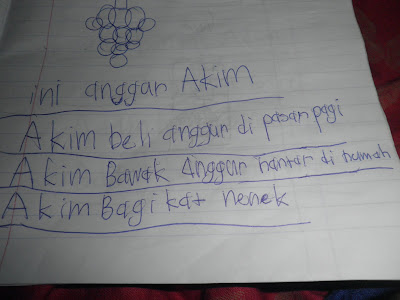 ini anggur Akim
Akim beli anggur di pasar pagi
Akim Bawak Anggur hantar di rumah
Akim Bagi kat nenek